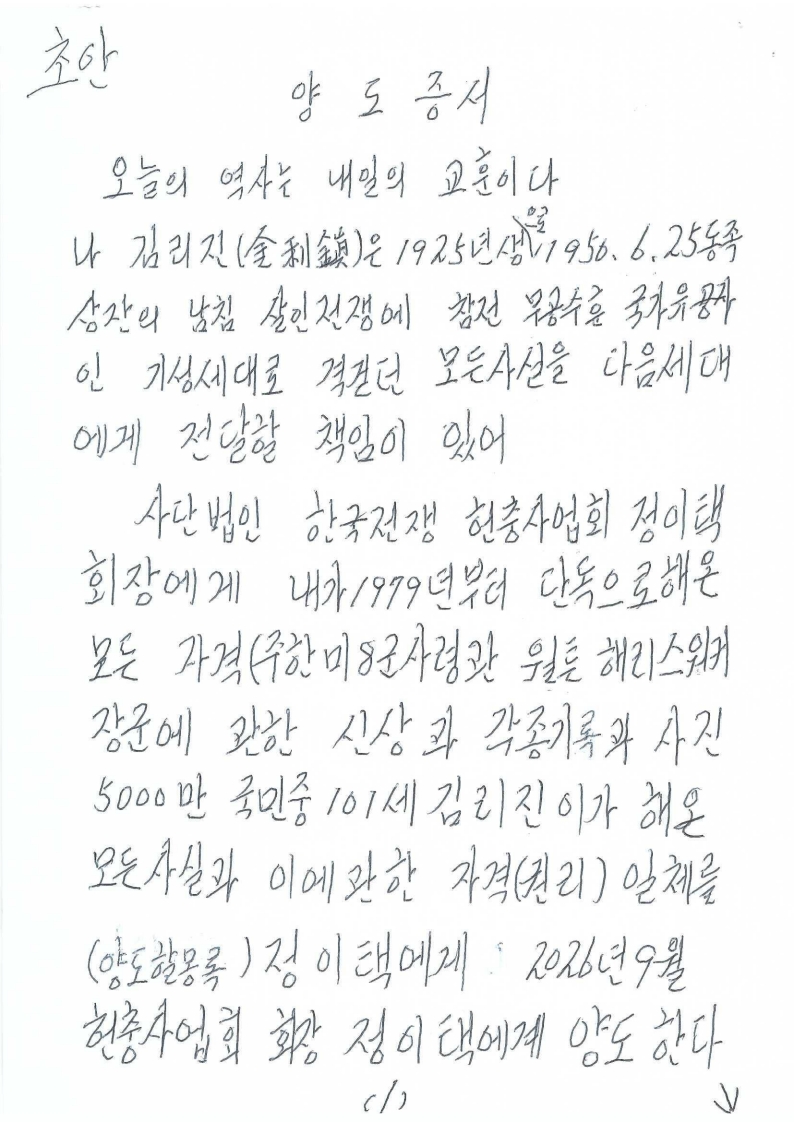 초안
양 도 증 서
오늘의 역사는 내일의 교훈이다
나 김리진(金利鎭)은 1925년생으로 1950.6.25동족
상잔의 남침 살인전쟁에 참전 무공수훈 국가유공자
인 기성세대로 격걷던 모든사실을 다음세대
에게 전달할 책임이 있어
사단법인 한국전쟁 헌충사업회 정이택
회장에게 내가1979년부터 단독으로해온
모든 자격(주한미8군사령관 월튼 해리스워커
장군에 관한 신상과 각종기록과 사진
5000만 국민중 101세 김리진이가 해온
모든사실과 이에관한 자격(권리) 일체를
(양도할몽록) 정이택에게 2026년9월
헌충사업회 회장 정이택에게 양도 한다
(1) ↓